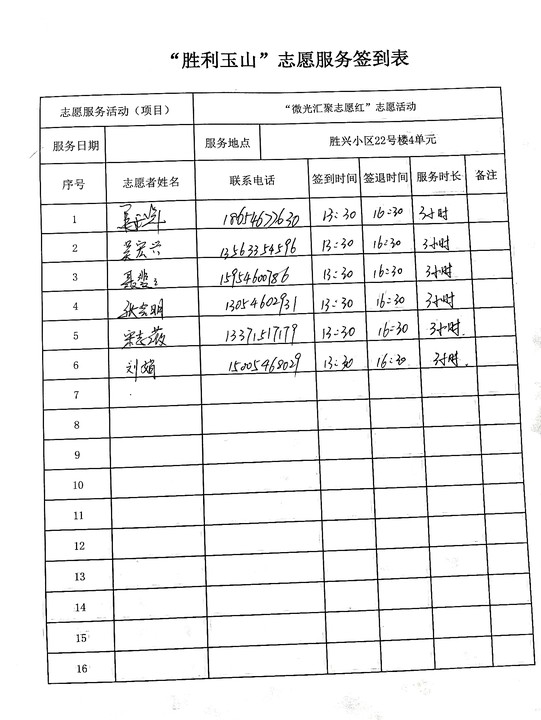 “胜利玉山”志愿服务签到表
志愿服务活动（项目） “微光汇聚志愿红”志愿活动
服务日期 服务地点 胜兴小区22号楼4单元
序号 志愿者姓名 联系电话 签到时间 签退时间 服务时长 备注
1 18654672630 13:30 16:30 3小时
2 吴宏兴 13563354596 13:30 16:30 3小时
3 15954600786 13:30 16:30 3小时
4 张会明 13054602931 13:30 16:30 3小时
5 13371517179 13:30 16:30 3小时
6 刘娟 15005468029 13:30 16:30 3小时
7
8
9
10
11
12
13
14
15
16